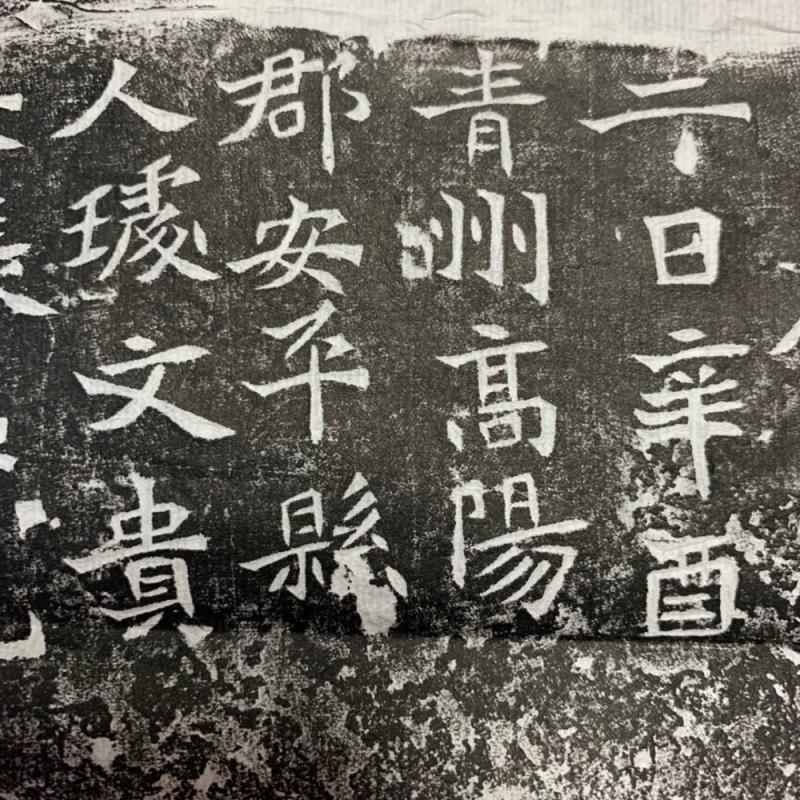 二日辛酉
青州髙陽
郡安平縣
人璩文貴